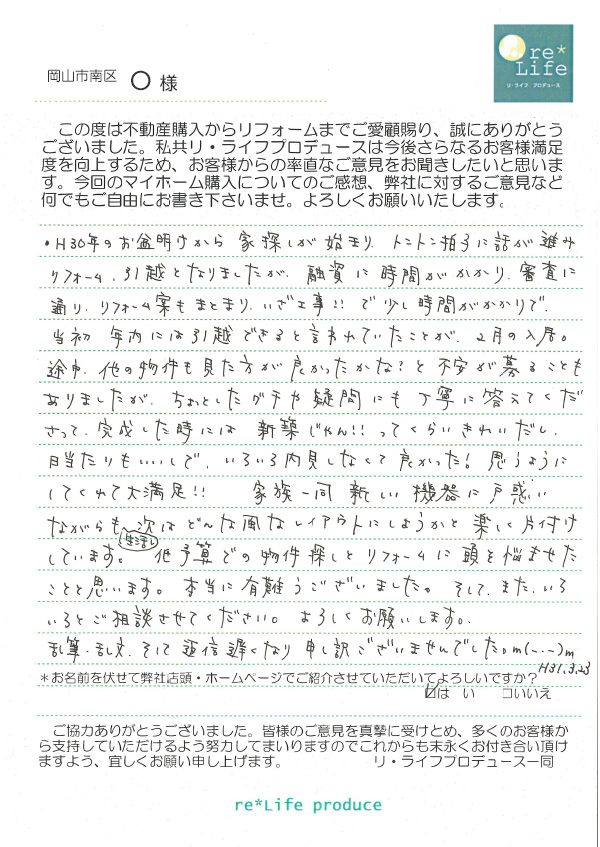 re*
Life
リ・ライフ プロデュース
岡山市南区 〇 様
この度は不動産購入からリフォームまでご愛顧賜り、誠にありがとう
ございました。私共リ・ライフプロデュースは今後さらなるお客様満足
度を向上するため、お客様からの率直なご意見をお聞きしたいと思いま
す。今回のマイホーム購入についてのご感想、弊社に対するご意見など
何でもご自由にお書き下さいませ。よろしくお願いいたします。
・H30年のお盆明けから 家探しが始まり、トントン拍子に話が進み
リフォーム、引越となりましたが、融資に時間がかかり、審査に
通り、リフォーム案もまとまり、いざ工事!! で少し時間がかかりで、
当初 年内には引越できると言われていたことが、2月の入居。
途中、他の物件も見た方が良かったかな?と不安が募ることも
ありましたが、ちょっとしたグチや疑問にも丁寧に答えてくだ
さって、完成した時には 新築じゃん!! ってくらいきれいだし、
日当たりもいいしで、いろいろ内見しなくて良かった! 思うように
してくれて大満足!! 家族一同 新しい機器に戸惑い
ながらも、次はどんな風なレイアウトにしようかと楽しく片付け
生活
しています。低予算での物件探しとリフォームに頭を悩ませた
ことと思います。本当に有難うございました。そして、また、いろ
いろとご相談させてください。よろしくお願いします。
乱筆・乱文、そして返信遅くなり 申し訳ございませんでした。m(-.-)m
H31.3.23
*お名前を伏せて弊社店頭・ホームページでご紹介させていただいてよろしいですか?
☑は い □いいえ
ご協力ありがとうございました。皆様のご意見を真摯に受けとめ、多くのお客様か
ら支持していただけるよう努力してまいりますのでこれからも末永くお付き合い頂け
ますよう、宜しくお願い申し上げます。 リ・ライフプロデュース一同
re*Life produce